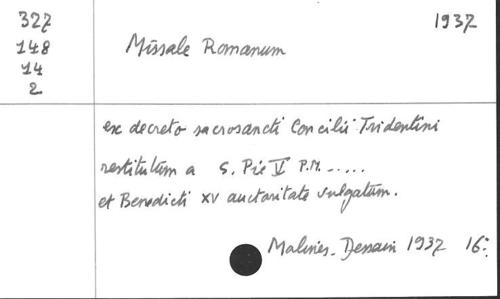 327
148
14
2
1937
Missale Romanum
ex decreto sacrosancti Concilii Tridentini
restitutum a S. Pie V P.M. .....
et Benedicti XV auctoritate vulgatum.
Malines. Dessain 1937 16: